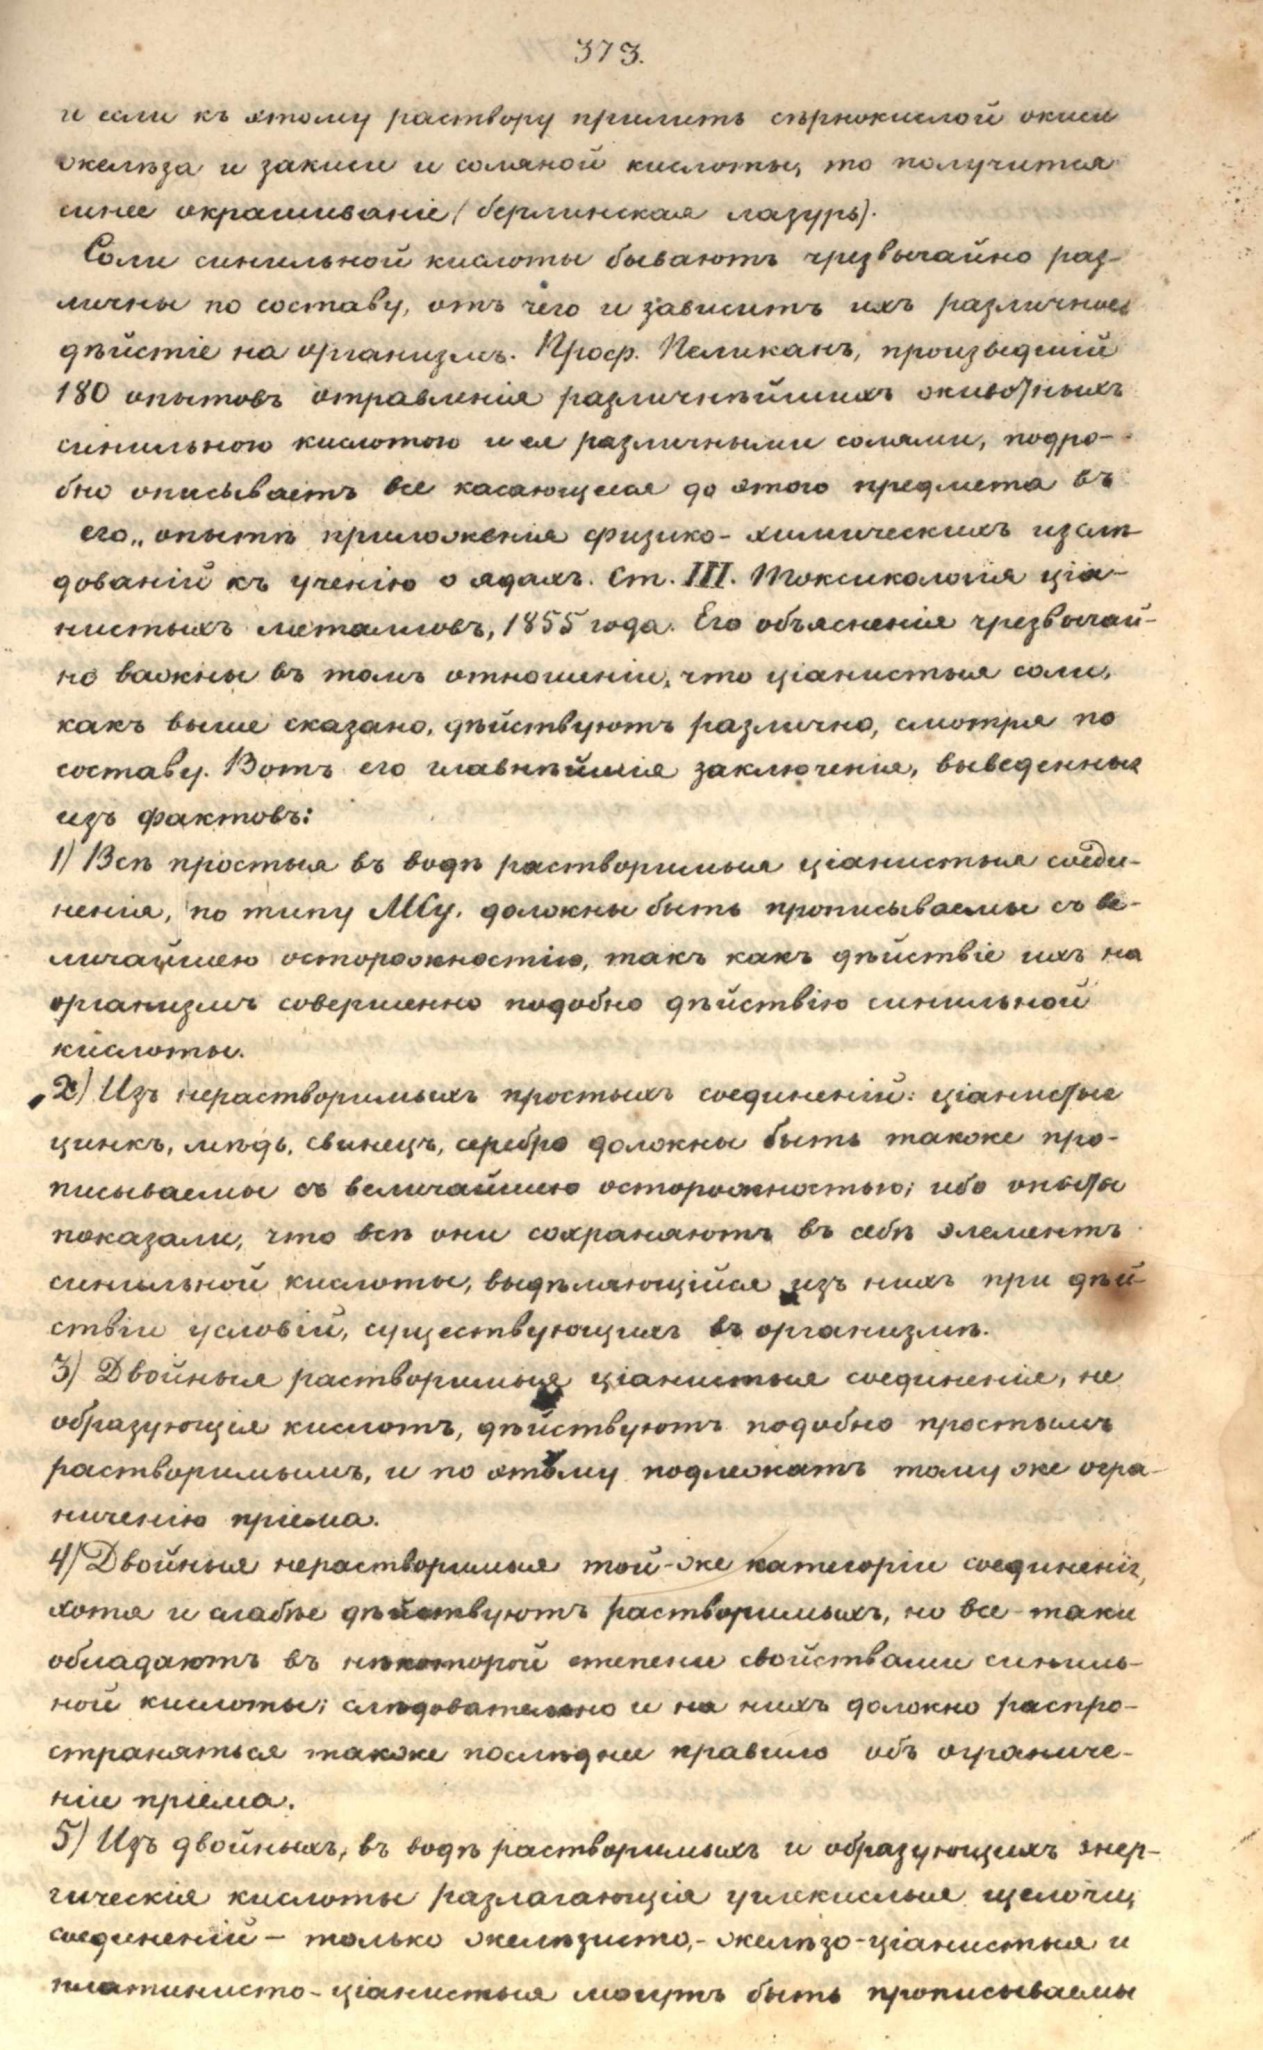 373.
и если къ этому раствору прилить сѣрнокислой окиси
желѣза и закиси и соляной кислоты, то получится
синее окрашиваніе (берлинская лазурь).
Соли синильной кислоты бываютъ чрезвычайно раз-
личны по составу, отъ чего и зависитъ ихъ различное
дѣйстіе на организмъ. Проф. Пеликанъ, произведшій
180 опытовъ отравленія различнѣйшихъ животныхъ
синильною кислотою и ея различными солями, подро-
бно описываетъ все касающееся до этого предмета въ
его „опытѣ приложенія физико-химическихъ изслѣ
дованій къ ученію о ядахъ. Ст. III. Токсикологія ціа-
нистыхъ металловъ, 1855 года. Его объясненія чрезвычай-
но важны въ томъ отношеніи, что ціанистыя соли,
какъ выше сказано, дѣйствуютъ различно, смотря по
составу. Вотъ его главнѣйшія заключенія, выведенныя
изъ фактовъ:
1) Всѣ простыя въ водѣ растворимыя ціанистыя соеди-
ненія, по типу MCy, должны быть прописываемы съ ве-
личайшею осторожностію, такъ какъ дѣйствіе ихъ на
организмъ совершенно подобно дѣйствію синильной
кислоты.
2) Изъ нерастворимыхъ простыхъ соединеній: ціанистые
цинкъ, мѣдь, свинецъ, серебро должны быть также про-
писываемы съ величайшею осторожностью; ибо опыты
показали, что всѣ они сохраняютъ въ себѣ элементъ
синильной кислоты, выдѣляющійся изъ нихъ при дѣй-
ствіи условій, существующихъ въ организмѣ.
3) Двойныя растворимыя ціанистыя соединенія, не
образующія кислотъ, дѣйствуютъ подобно простымъ
растворимымъ, и по этому подлежатъ тому же огра-
ниченію пріема.
4) Двойныя нерастворимыя той-же категоріи соединенія,
хотя и слабѣе дѣйствуютъ растворимыхъ, но все-таки
обладаютъ въ нѣкоторой степени свойствами синиль-
ной кислоты; слѣдовательно и на нихъ должно распро-
страняться также послѣднее правило объ ограниче-
ніи пріема.
5) Изъ двойныхъ, въ водѣ растворимыхъ и образующихъ энер-
гическія кислоты разлагающія углекислыя щелочи,
соединеній – только желѣзисто,- желѣзо-ціанистыя и
платинисто-ціанистыя могутъ быть прописываемы